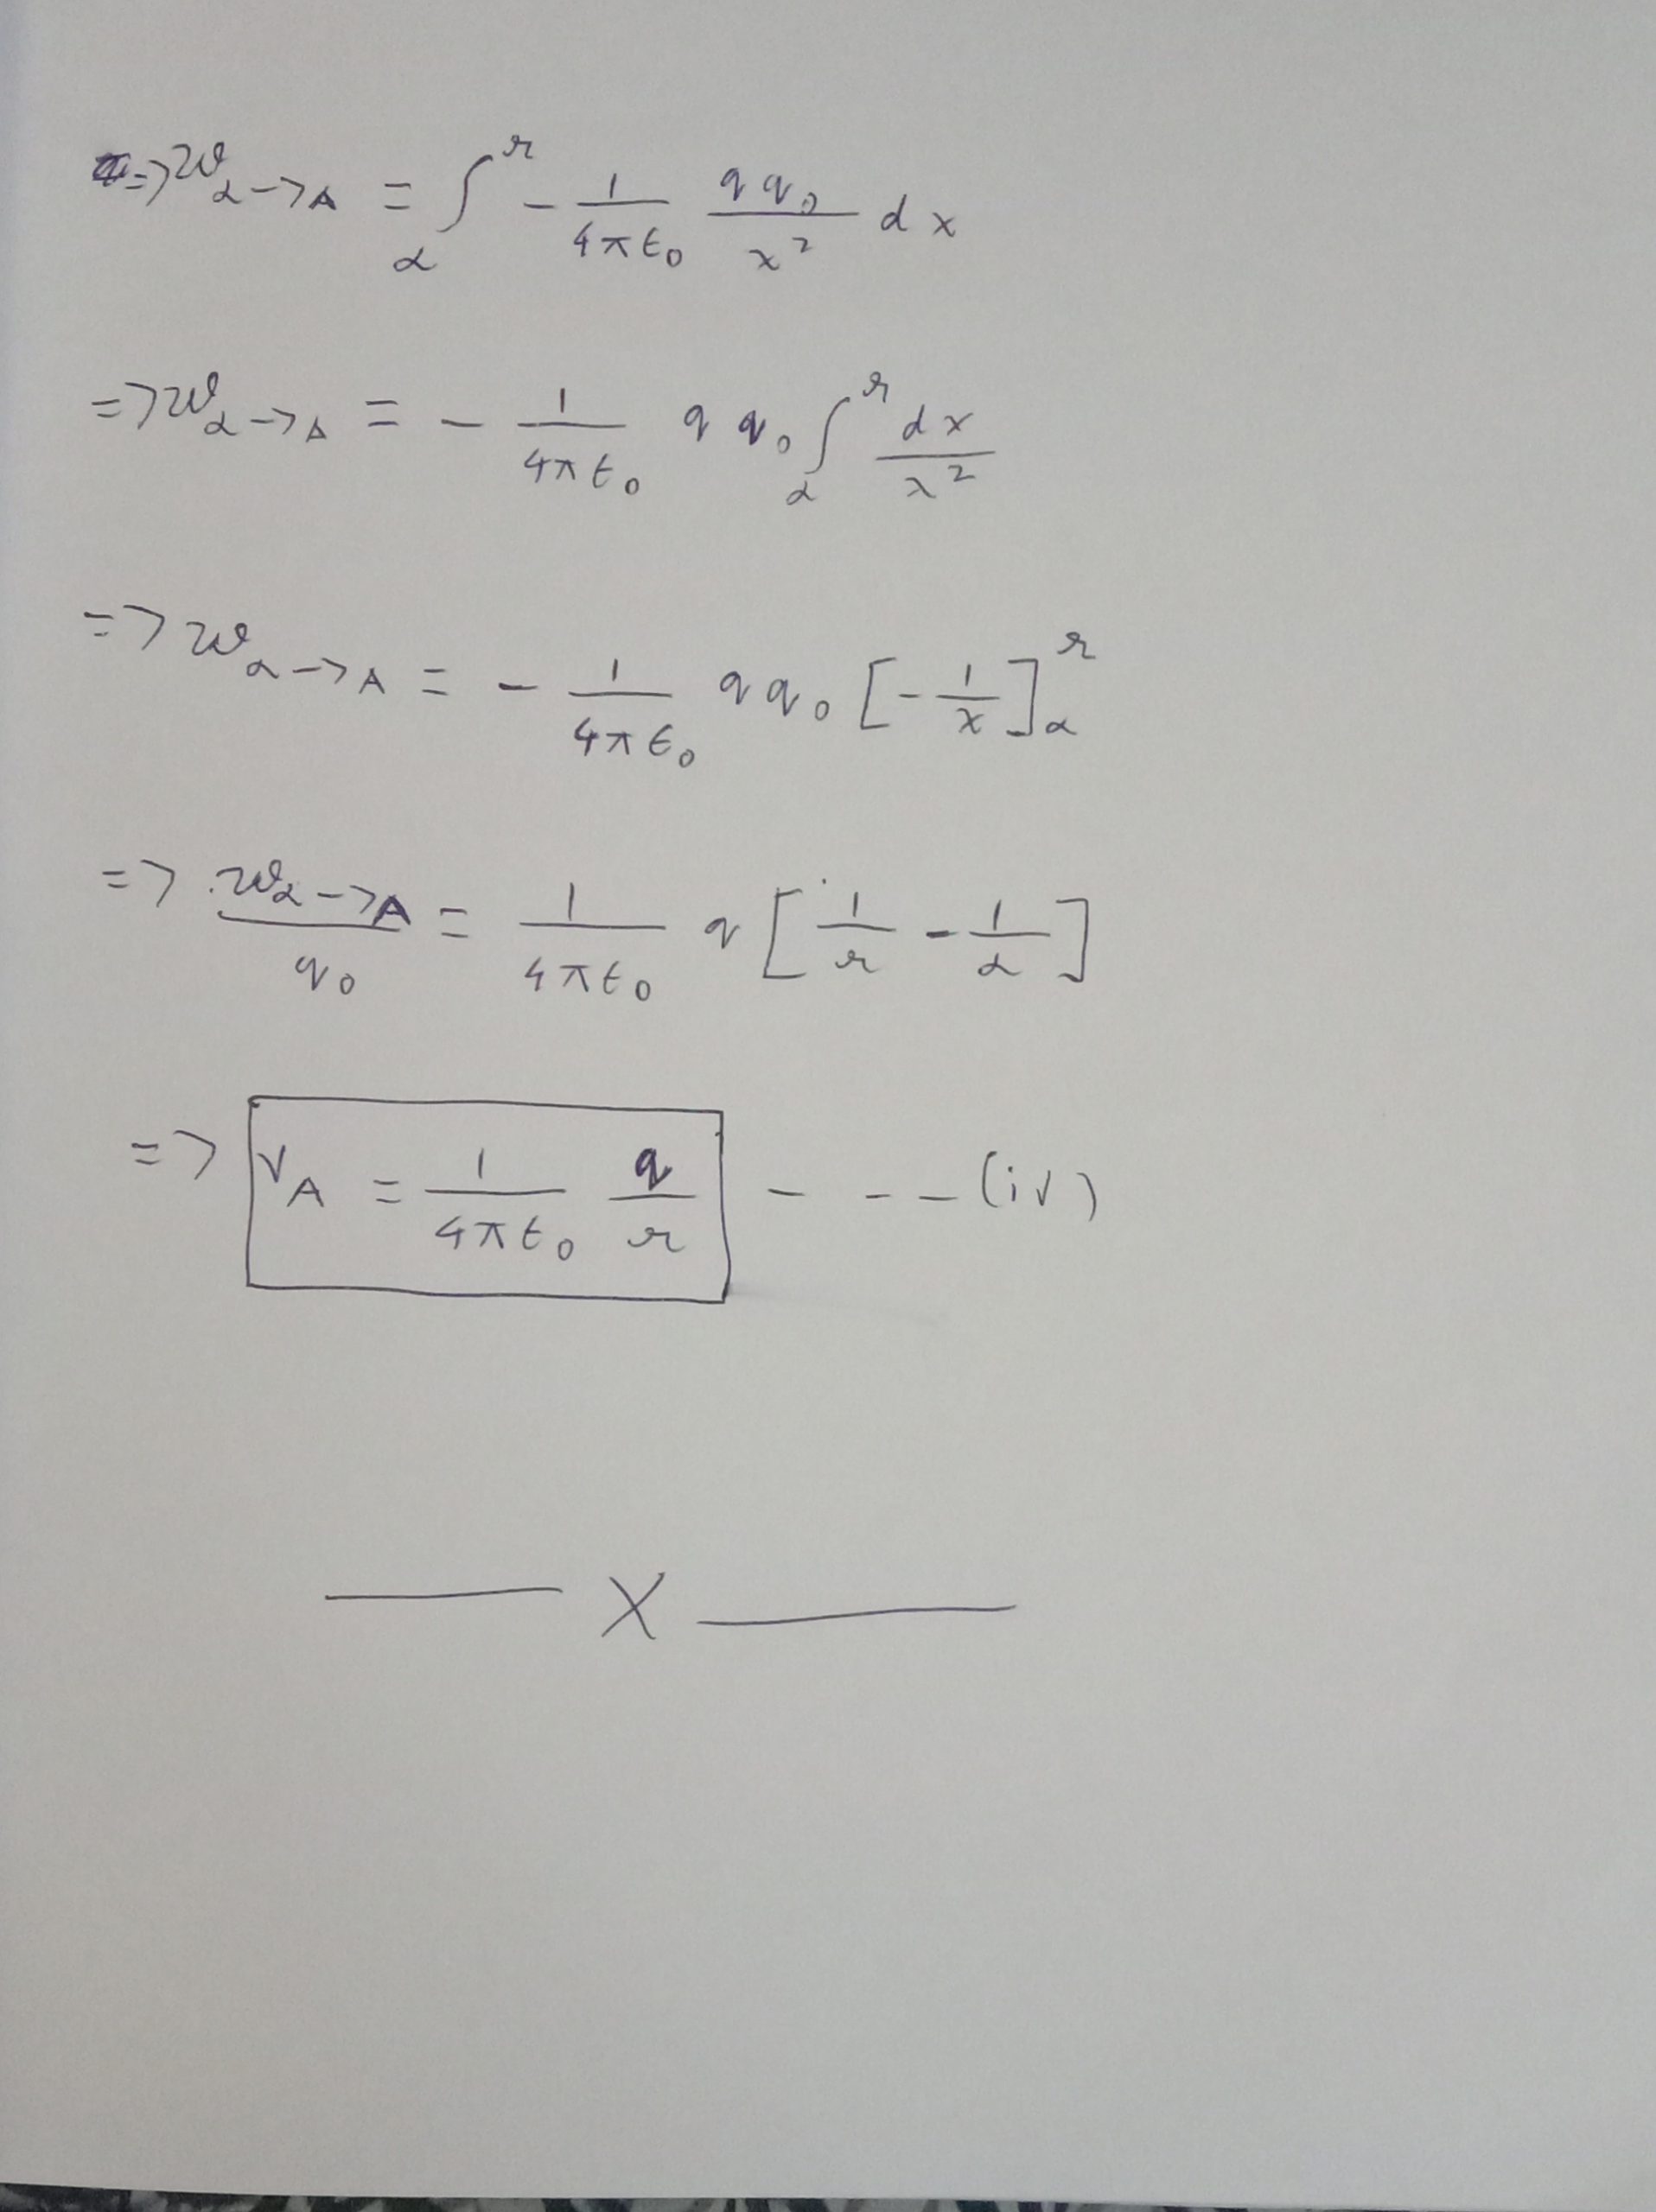 => W_{α->A} = ∫_{α}^{r} - \frac{1}{4πε_0} \frac{q q_0}{x^2} dx
=> W_{α->A} = - \frac{1}{4πε_0} q q_0 ∫_{α}^{r} \frac{dx}{x^2}
=> W_{α->A} = - \frac{1}{4πε_0} q q_0 [-\frac{1}{x}]_{α}^{r}
=> \frac{W_{α->A}}{q_0} = \frac{1}{4πε_0} q [\frac{1}{r} - \frac{1}{α}]
=> V_A = \frac{1}{4πε_0} \frac{q}{r} - - - (iv)
—— X ——